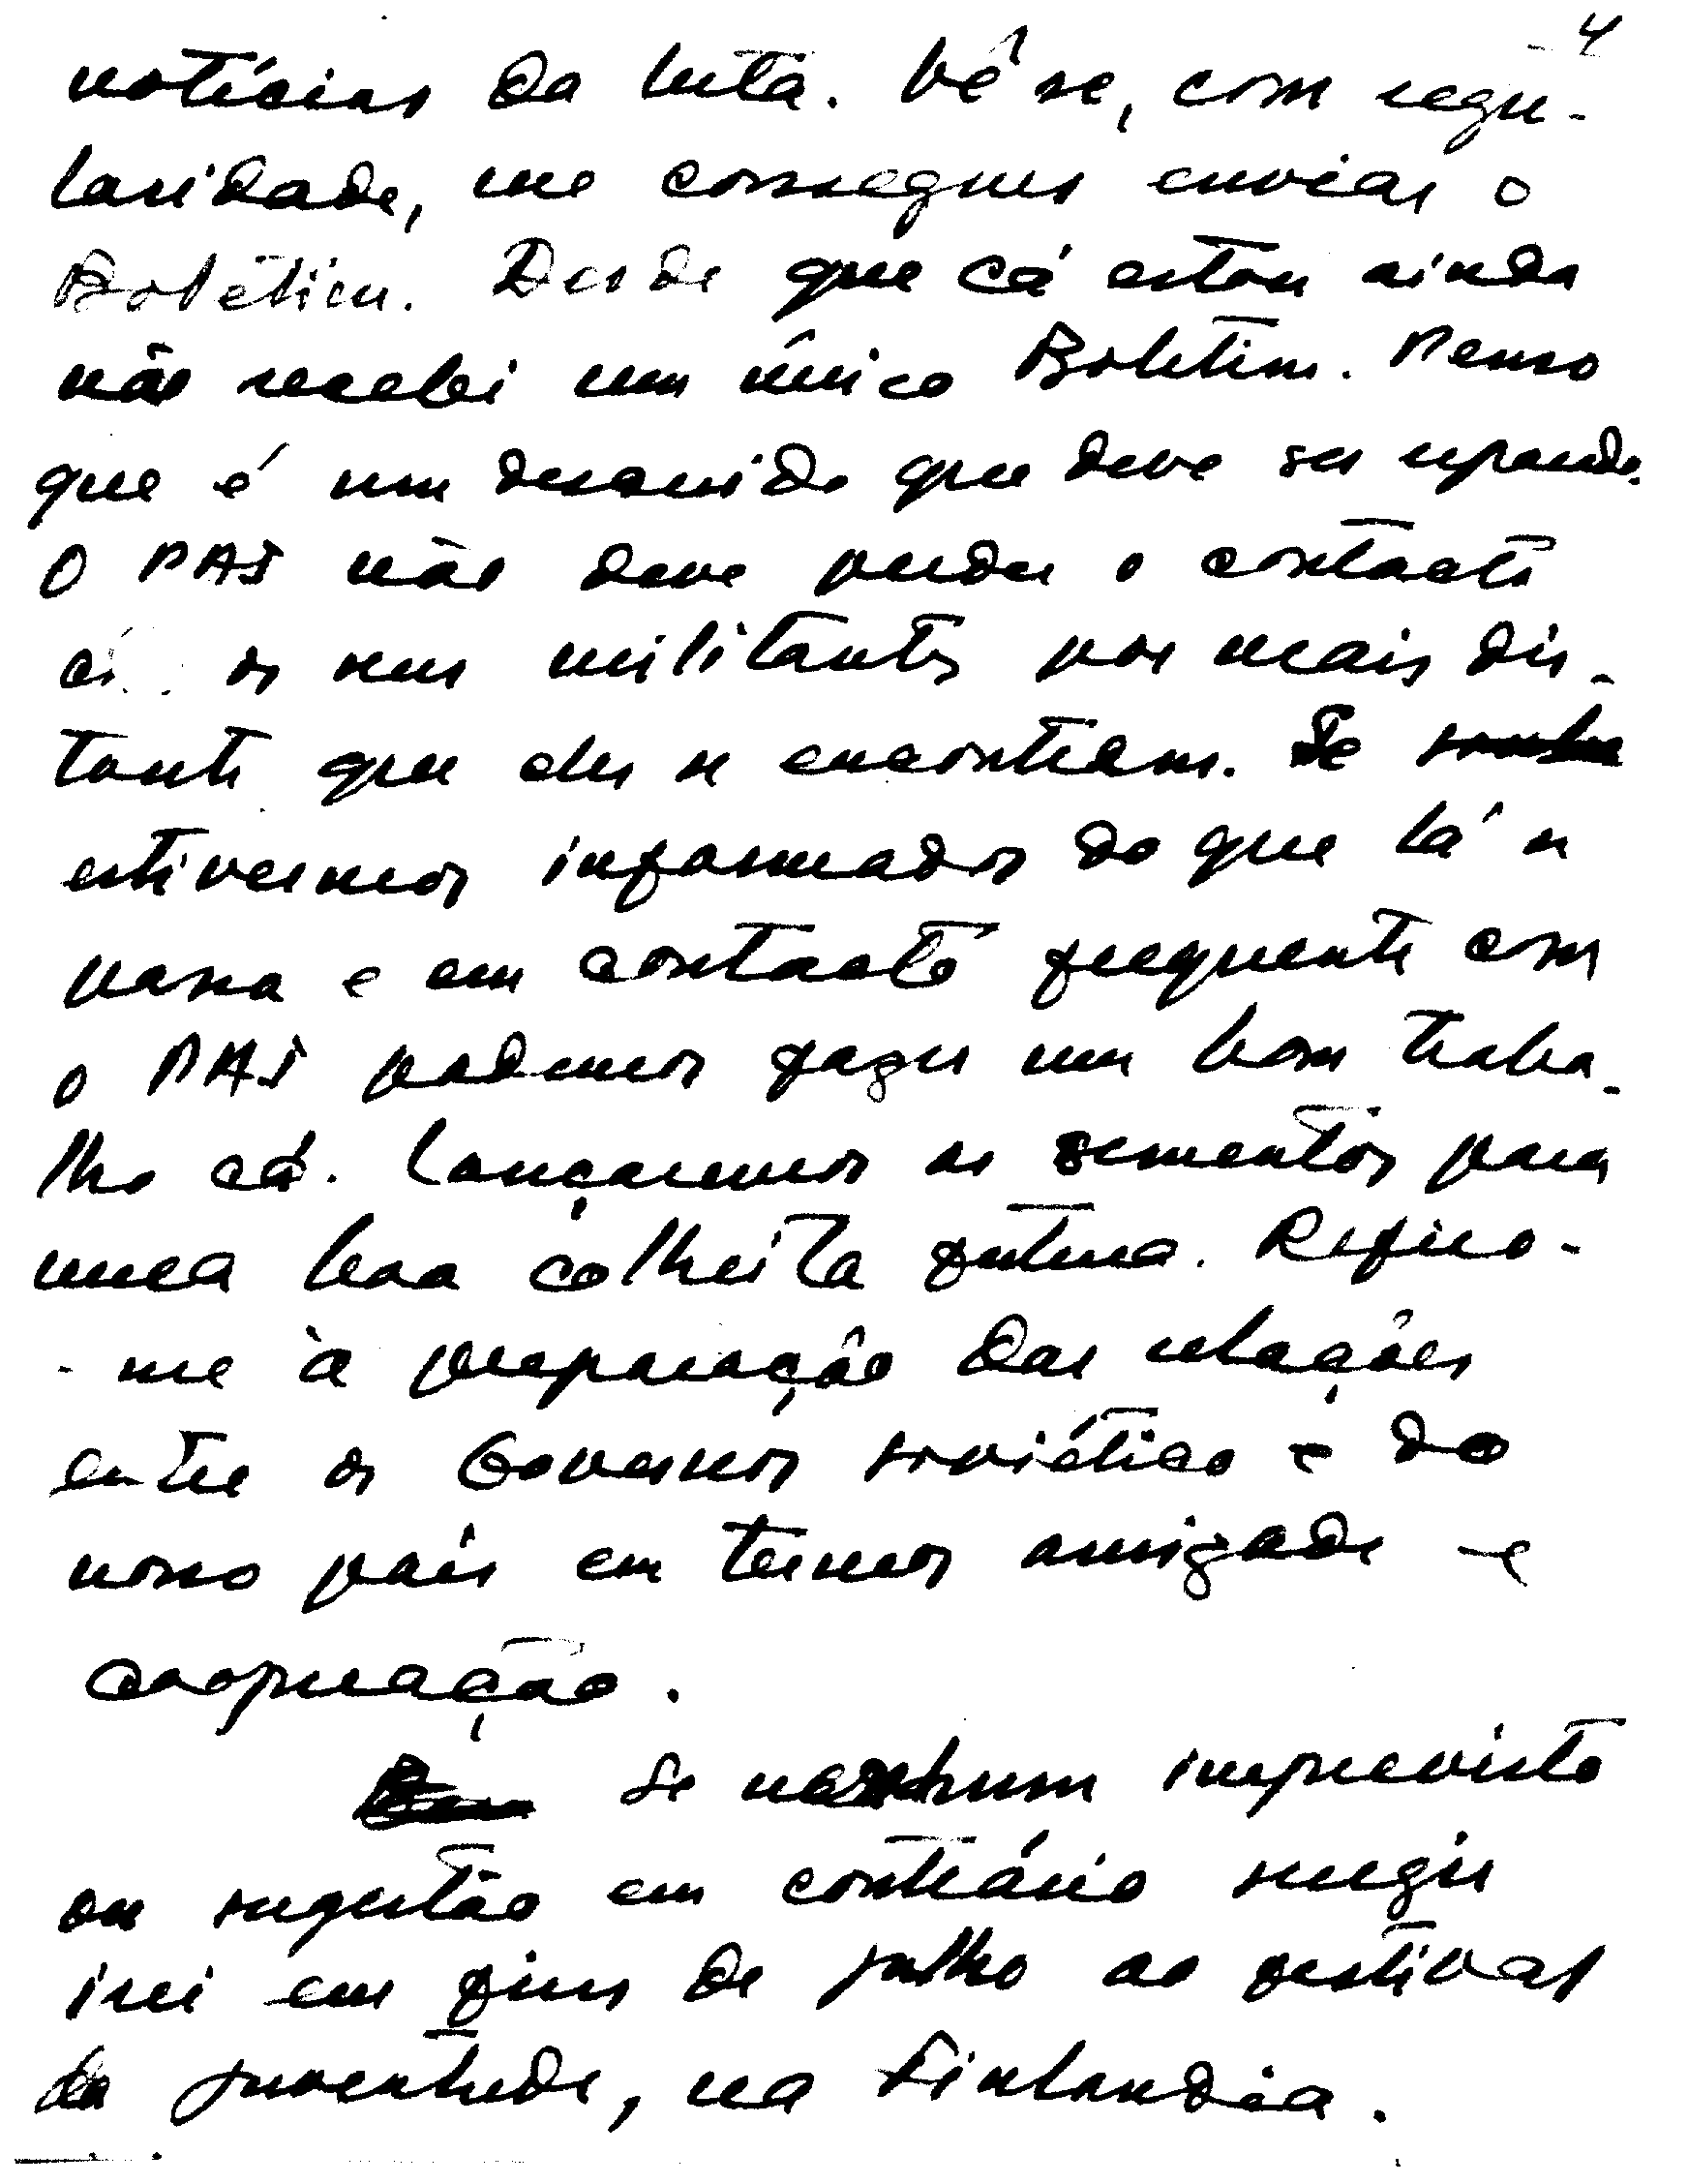 4
notícias da luta. Vê se, com regu-
laridade, me consegues enviar o
Boletim. Desde que cá estou ainda
não recebi um único Boletim. Penso
que é um descuido que deve ser reparado.
O PAI não deve perder o contacto
c/ os seus militantes por mais dis-
tante que eles se encontrem. Se
estivermos informados do que lá se
passa e em contacto frequente com
o PAI podemos fazer um bom traba-
lho cá. Lançaremos as sementes para
uma boa colheita futura. Refiro-
-me à preparação das relações
entre os Governos soviético e do
nosso país em termos amizade e
cooperação.
Se nenhum imprevisto
ou sugestão em contrário surgir
irei em fins de julho ao festival
da juventude, na Finlandia.